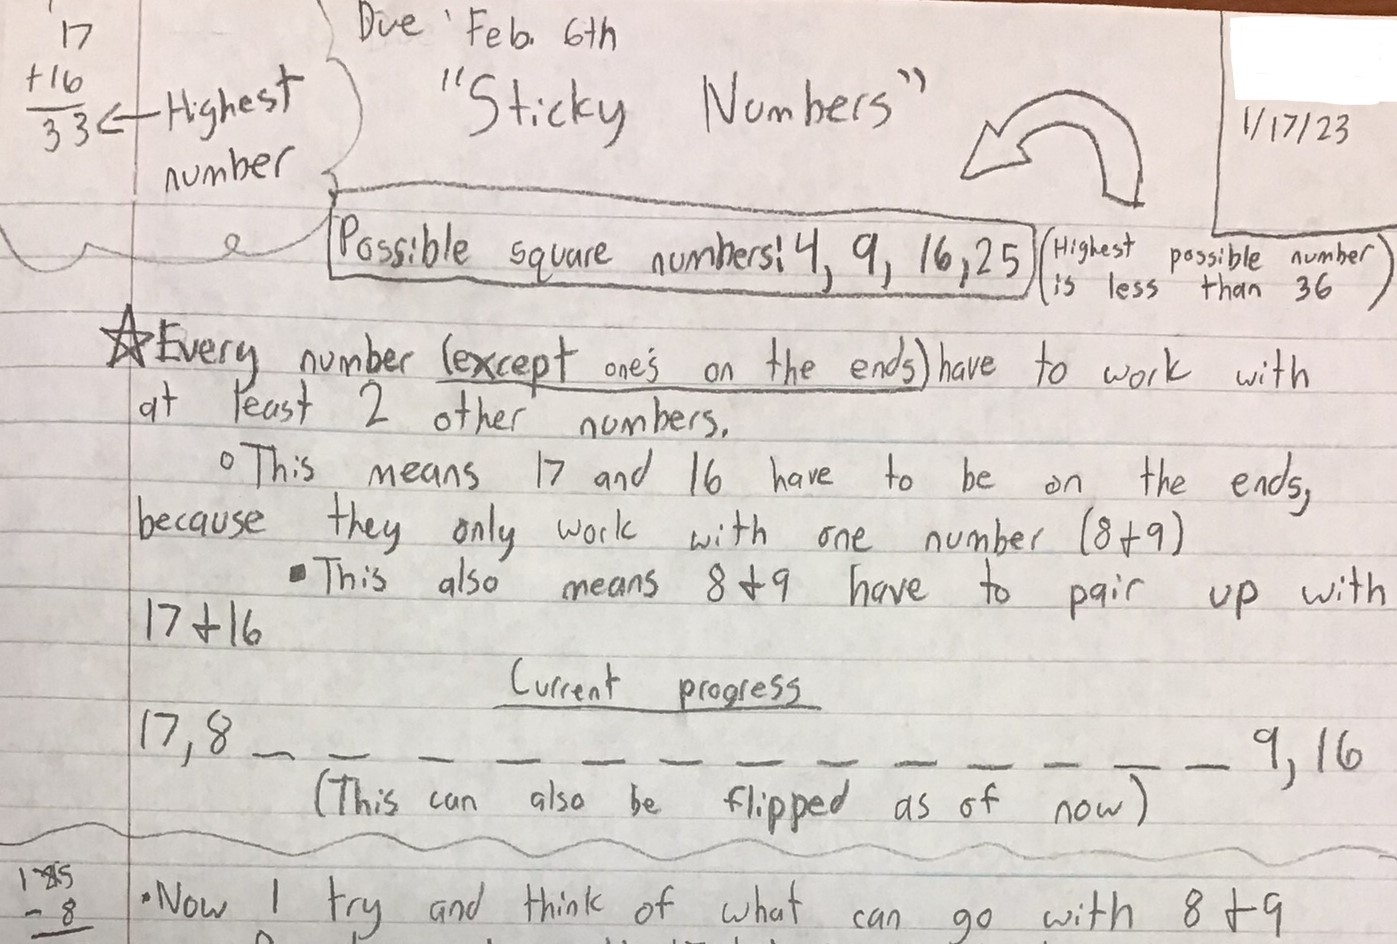 17
+16
33 ← Highest
number
Due Feb. 6th
"Sticky Numbers"
1/17/23
Possible square numbers: 4, 9, 16, 25
(Highest possible number
is less than 36)
☆Every number (except one's on the ends) have to work with
at least 2 other numbers.
○ This means 17 and 16 have to be on the ends,
because they only work with one number (8+9)
▪ This also means 8+9 have to pair up with
17+16
Current progress
17, 8 _ _ _ _ _ _ _ _ _ _ _ _ _ 9, 16
(This can also be flipped as of now)
- 8
• Now I try and think of what can go with 8+9